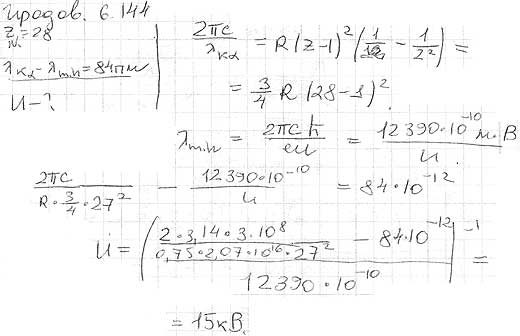 Иродов. 6.144
Z = 28
Ni
λKα − λmin = 84пм
U − ?
2πc / λKα = R(Z−1)² (1/1² − 1/2²) =
= 3/4 R (28−1)²
λmin = 2πcħ / eU = 12390·10⁻¹⁰ м·В / U
2πc / (R·3/4·27²) − 12390·10⁻¹⁰ / U = 84·10⁻¹²
U = ((2·3,14·3·10⁸ / (0,75·2,07·10¹⁶·27²) − 84·10⁻¹²) / 12390·10⁻¹⁰)⁻¹ =
= 15кВ.